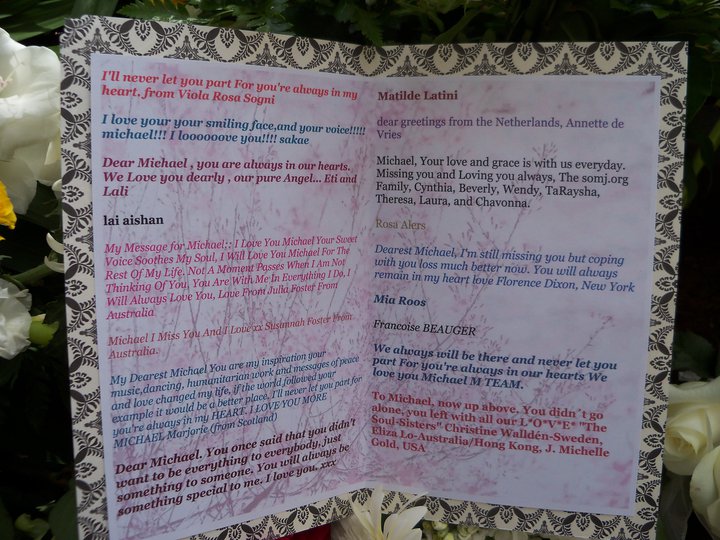 I'll never let you part For you're always in my
heart, from Viola Rosa Sogni
I love your your smiling face,and your voice!!!!!
michael!!! I loooooove you!!!! sakae
Dear Michael , you are always in our hearts.
We Love you dearly , our pure Angel... Eti and
Lali
lai aishan
My Message for Michael;: I Love You Michael Your Sweet
Voice Soothes My Soul, I Will Love You Michael For The
Rest Of My Life, Not A Moment Passes When I Am Not
Thinking Of You, You Are With Me In Everything I Do, I
Will Always Love You, Love From Julia Foster From
Australia
Michael I Miss You And I Love xx Susannah Foster From
Australia.
My Dearest Michael You are my inspiration your
music,dancing, humanitarian work and messages of peace
and love changed my life, if the world followed your
example it would be a better place, I'll never let you part for
you're always in my HEART. I LOVE YOU MORE
MICHAEL Marjorie (from Scotland)
Dear Michael, You once said that you didn't
want to be everything to everybody, just
something to someone. You will always be
something special to me. I love you, xxx
Matilde Latini
dear greetings from the Netherlands, Annette de
Vries
Michael, Your love and grace is with us everyday.
Missing you and Loving you always, The somj.org
Family, Cynthia, Beverly, Wendy, TaRaysha,
Theresa, Laura, and Chavonna.
Rosa Alers
Dearest Michael, I'm still missing you but coping
with you loss much better now. You will always
remain in my heart love Florence Dixon, New York
Mia Roos
Francoise BEAUGER
We always will be there and never let you
part For you're always in our hearts We
love you Michael M TEAM.
To Michael, now up above, You didn´t go
alone, you left with all our L*O*V*E* "The
Soul-Sisters" Christine Walldén-Sweden,
Eliza Lo-Australia/Hong Kong, J. Michelle
Gold, USA